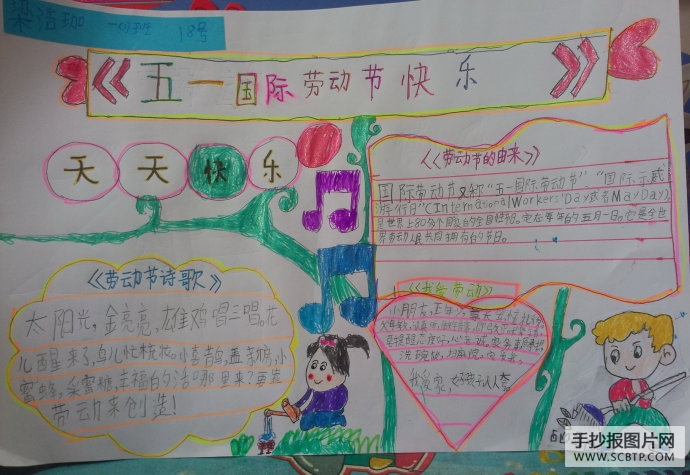 梁浩珈 一(1)班 18号
《五一国际劳动节快乐》
天天快乐
《劳动节的由来》
国际劳动节又称"五一国际劳动节"、"国际示威
游行日"(International Workers' Day或者May Day)
是世界上80多个国家的全国性节日。定在每年的五月一日。它是全世
界劳动人民共同拥有的节日。
《劳动节诗歌》
太阳光,金亮亮,雄鸡唱三唱。花
儿醒来了,鸟儿忙梳妆。小喜鹊,盖新房,小
蜜蜂,采蜜糖,幸福的生活哪里来?要靠
劳动来创造!
《我爱劳动》
小朋友,
我爱家,好孩子人人夸。
手抄报图片网
WWW.SCBTP.COM